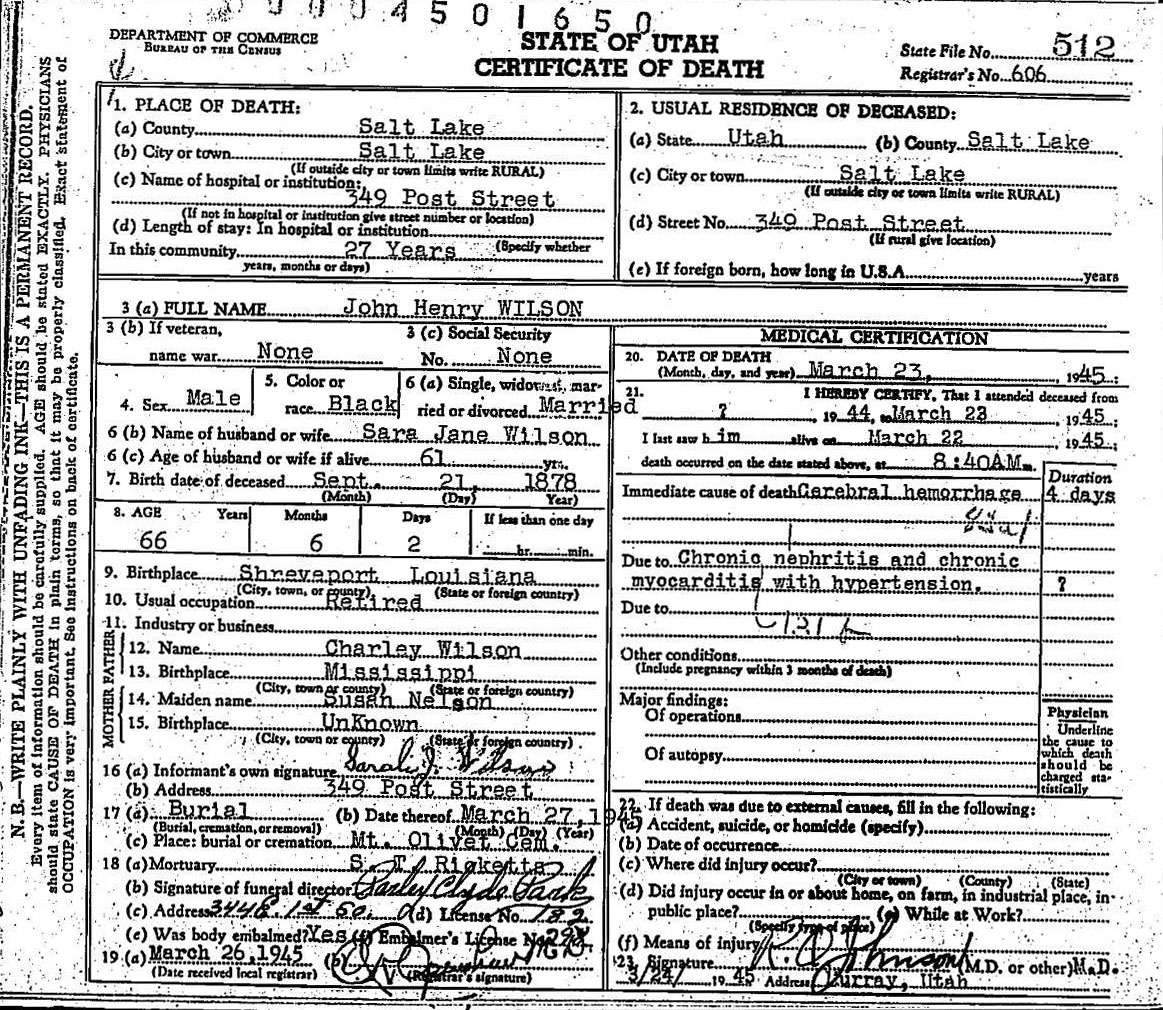 0 0 0 4 5 0 1 6 5 0
DEPARTMENT OF COMMERCE
BUREAU OF THE CENSUS
STATE OF UTAH
CERTIFICATE OF DEATH
State File No. 512
Registrar's No. 606
N. B.—WRITE PLAINLY WITH UNFADING INK—THIS IS A PERMANENT RECORD.
Every item of information should be carefully supplied. AGE should be stated EXACTLY. PHYSICIANS
should state CAUSE OF DEATH in plain terms, so that it may be properly classified. Exact statement of
OCCUPATION is very important. See instructions on back of certificate.
1. PLACE OF DEATH:
(a) County Salt Lake
(b) City or town Salt Lake
(If outside city or town limits write RURAL)
(c) Name of hospital or institution:
349 Post Street
(If not in hospital or institution give street number or location)
(d) Length of stay: In hospital or institution
In this community 27 Years (Specify whether
years, months or days)
2. USUAL RESIDENCE OF DECEASED:
(a) State Utah (b) County Salt Lake
(c) City or town Salt Lake
(If outside city or town limits write RURAL)
(d) Street No. 349 Post Street
(If rural give location)
(e) If foreign born, how long in U.S.A. years
3 (a) FULL NAME John Henry WILSON
3 (b) If veteran,
name war None
3 (c) Social Security
No. None
4. Sex Male
5. Color or
race Black
6 (a) Single, widowed, mar-
ried or divorced Married
6 (b) Name of husband or wife Sara Jane Wilson
6 (c) Age of husband or wife if alive 61 yrs.
7. Birth date of deceased Sept. 21, 1878
(Month) (Day) Year)
8. AGE Years Months Days If less than one day
66 6 2 hr. min.
9. Birthplace Shreveport Louisiana
(City, town, or county) (State or foreign country)
10. Usual occupation Retired
11. Industry or business
FATHER
12. Name Charley Wilson
13. Birthplace Mississippi
(City, town or county) (State or foreign country)
MOTHER
14. Maiden name Susan Nelson
15. Birthplace UnKnown
(City, town or county) (State or foreign country)
16 (a) Informant's own signature Sarah J. Wilson
(b) Address 349 Post Street
17 (a) Burial (b) Date thereof March 27, 1945
(Burial, cremation, or removal) (Month) (Day) (Year)
(c) Place: burial or cremation Mt. Olivet Cem.
18 (a) Mortuary S. T. Ricketts
(b) Signature of funeral director Parley Clyde Park
(c) Address 344 E. 1st So. (d) License No. 182
(e) Was body embalmed? Yes (f) Embalmer's License No. 298
19 (a) March 26, 1945 (b)
(Date received local registrar) (Registrar's signature)
MEDICAL CERTIFICATION
20. DATE OF DEATH
(Month, day, and year) March 23, , 1945:
21. I HEREBY CERTIFY, That I attended deceased from
? , 1944, to March 23 , 1945:
I last saw h im alive on March 22 , 1945
death occurred on the date stated above, at 8:40A M.
Duration
Immediate cause of death Carebral hemorrhage 4 days
Due to Chronic nephritis and chronic
myocarditis with hypertension. ?
Due to
131
Other conditions
(Include pregnancy within 3 months of death)
Major findings:
Of operations
Of autopsy
Physician
Underline
the cause to
which death
should be
charged sta-
tistically
22. If death was due to external causes, fill in the following:
(a) Accident, suicide, or homicide (specify)
(b) Date of occurrence
(c) Where did injury occur?
(City or town) (County) (State)
(d) Did injury occur in or about home, on farm, in industrial place, in
public place? (e) While at Work?
(Specify type of place)
(f) Means of injury
23. Signature R. C. Johnson (M.D. or other) M.D.
3/24/ 1945 Address Murray, Utah